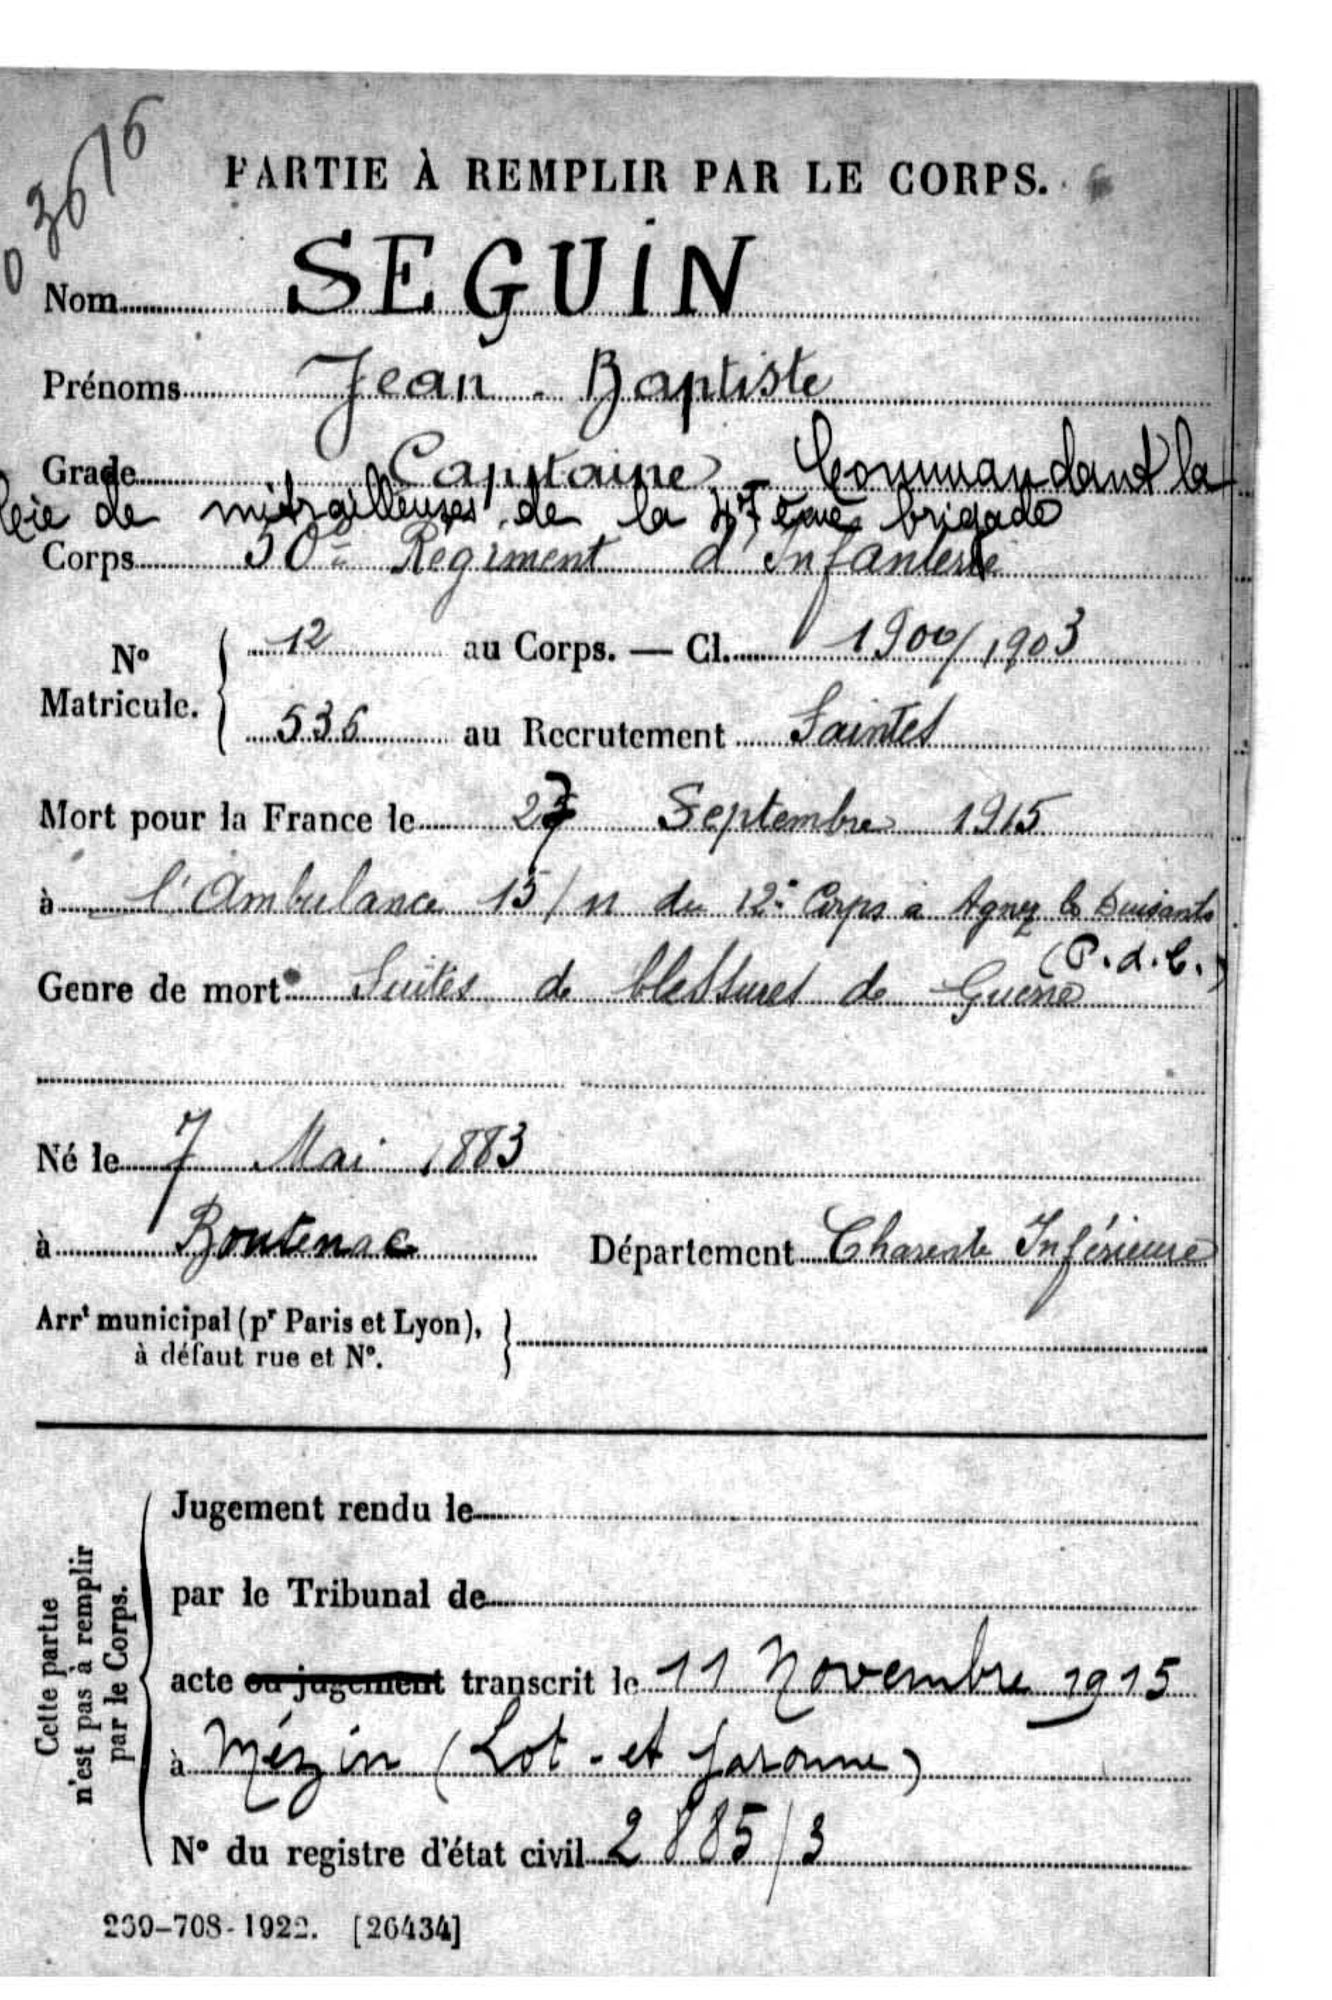 03676
PARTIE À REMPLIR PAR LE CORPS.
Nom SEGUIN
Prénoms Jean-Baptiste
Grade Capitaine - Commandant la
Cie de mitrailleuses de la 47ème brigade
Corps 50e Régiment d'Infanterie
No Matricule. { 12 au Corps. — Cl. 1900/1903
536 au Recrutement Saintes
Mort pour la France le 27 Septembre 1915
à l'Ambulance 15/11 du 12e Corps à Agnez les Duisants
(P.d.C.)
Genre de mort Suites de blessures de Guerre
Né le 7 Mai 1883
à Boutenac Département Charente Inférieure
Arrt municipal (pr Paris et Lyon), }
à défaut rue et No.
Cette partie
n'est pas à remplir
par le Corps.
Jugement rendu le
par le Tribunal de
acte ou jugement transcrit le 11 Novembre 1915
à Mézin (Lot-et Garonne)
No du registre d'état civil 2885/3
239-708-1922. [26434]